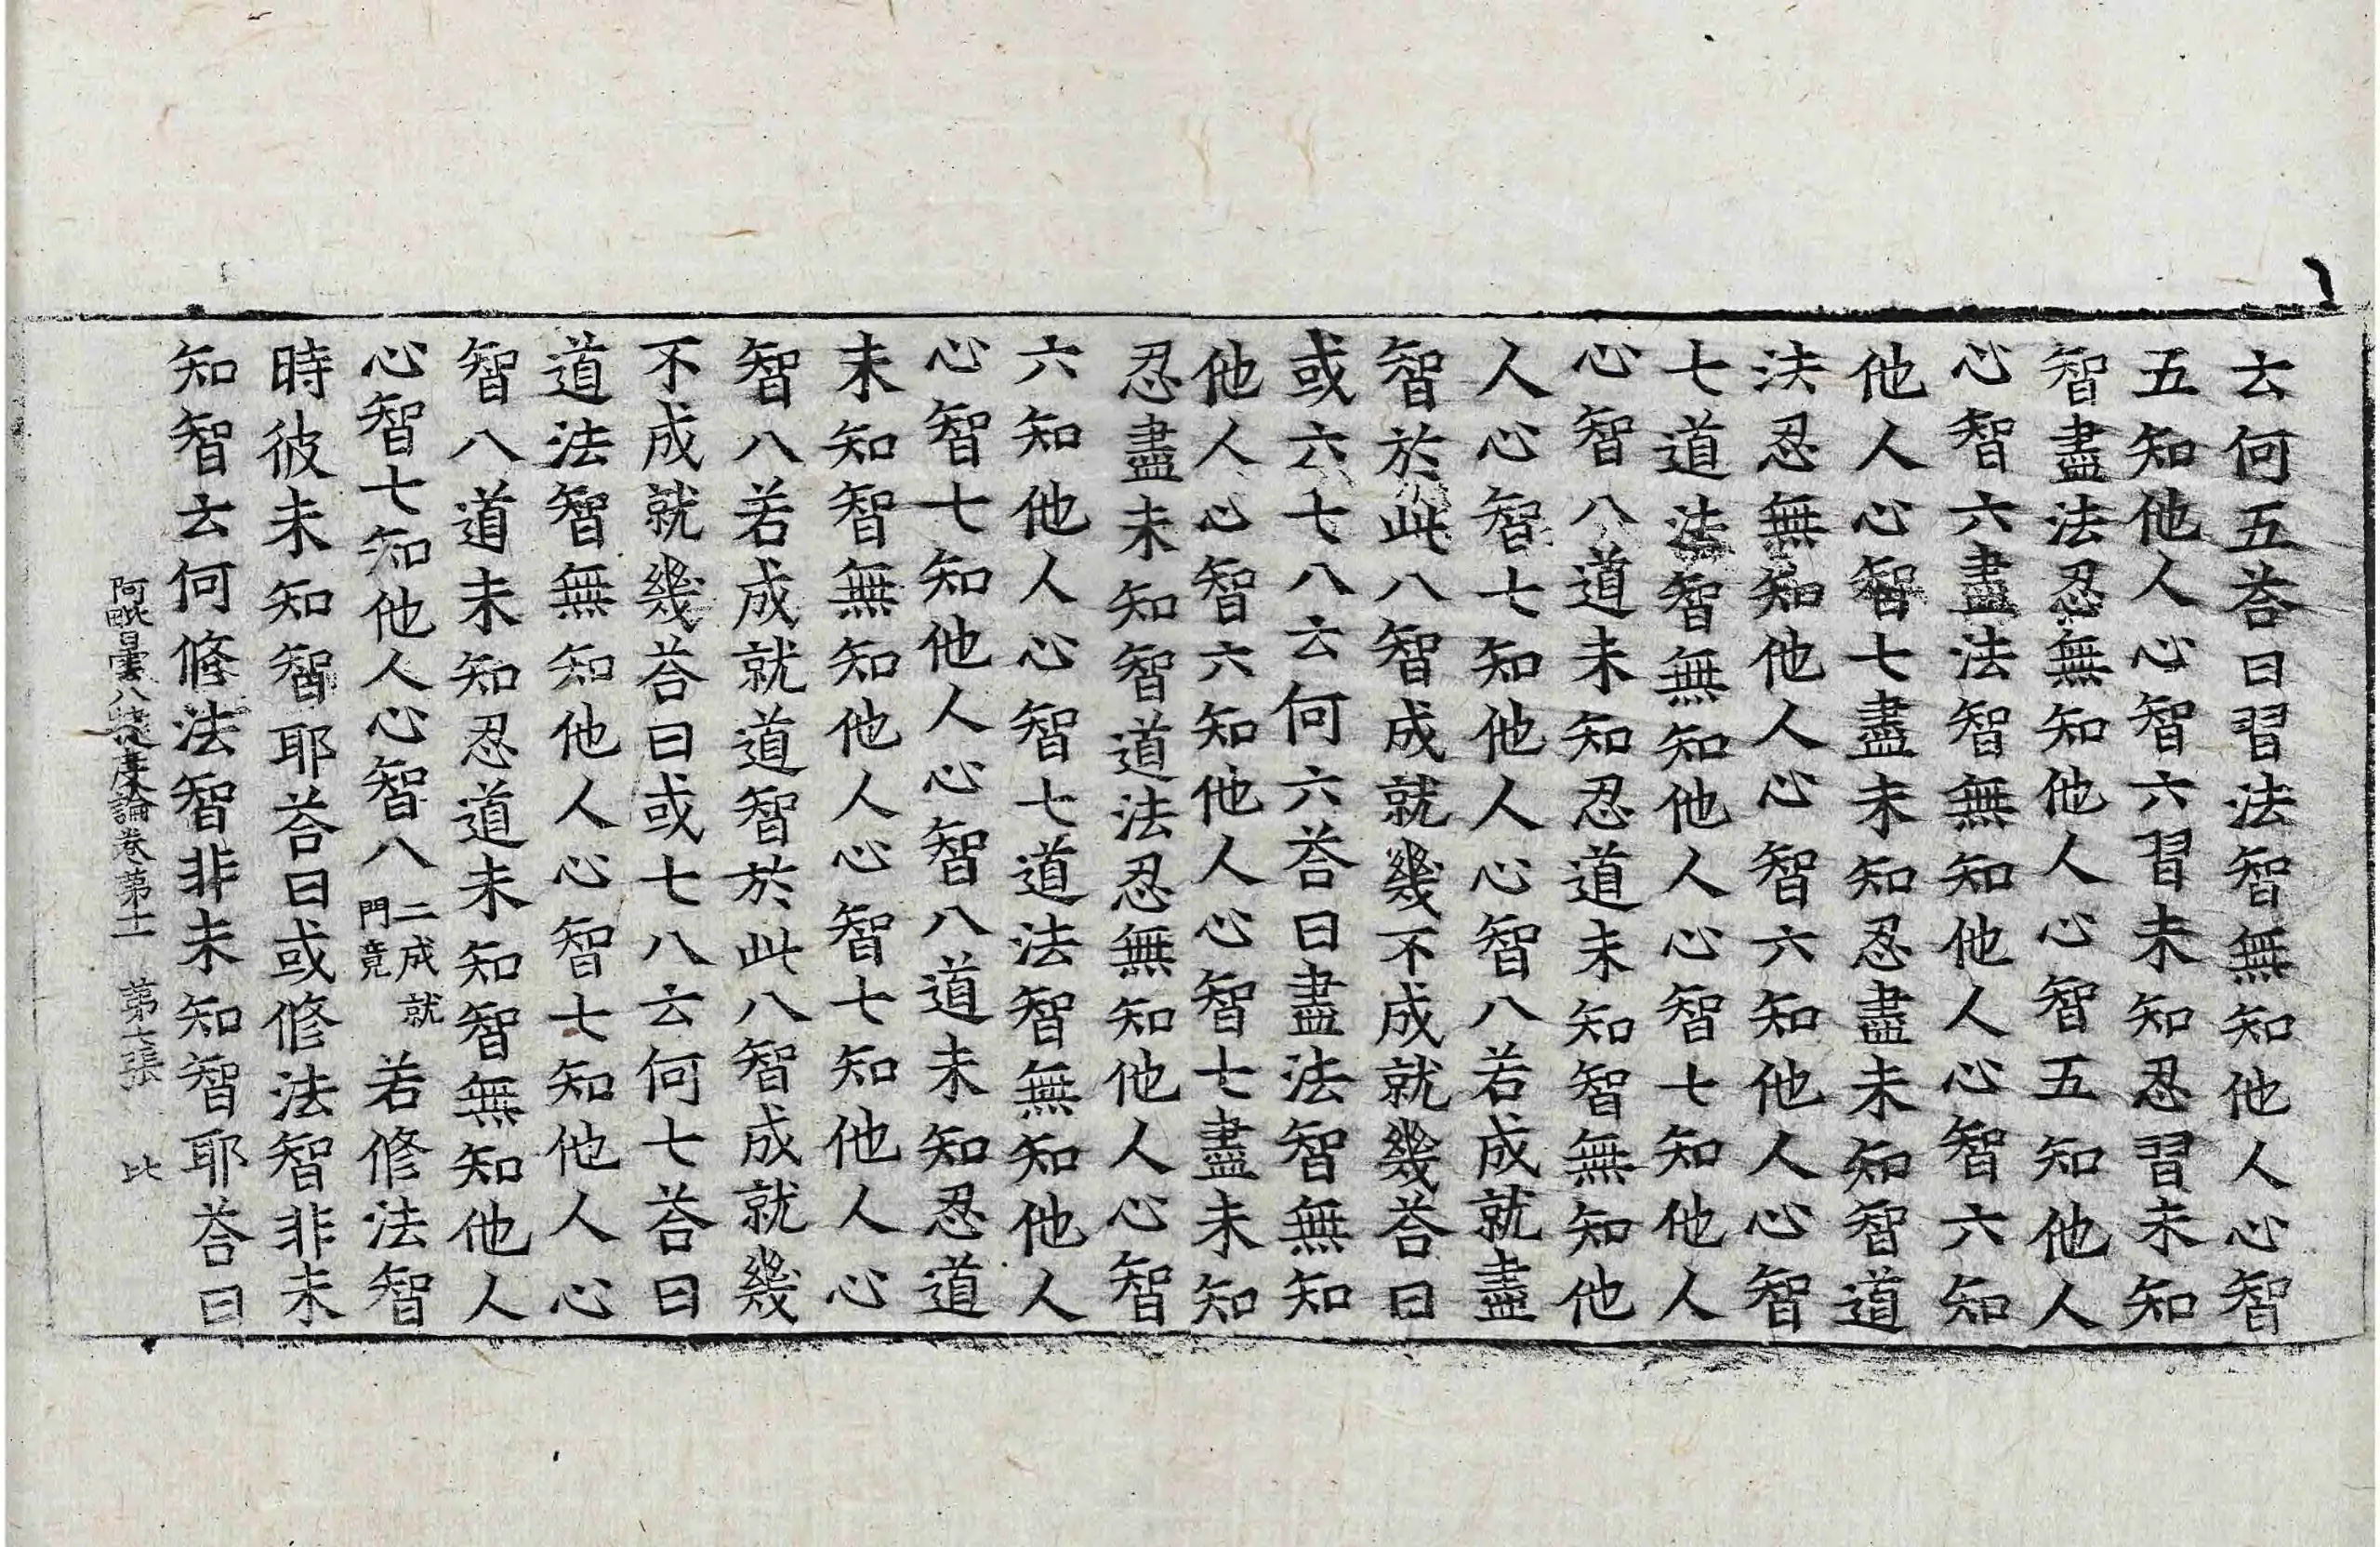 云何五荅曰習法智無知他人心智
五知他人心智六習未知忍習未知
智盡法忍無知他人心智五知他人
心智六盡法智無知他人心智六知
他人心智七盡未知忍盡未知智道
法忍無知他人心智六知他人心智
七道法智無知他人心智七知他人
心智八道未知忍道未知智無知他
人心智七知他人心智八若成就盡
智於此八智成就幾不成就幾荅曰
或六七八云何六荅曰盡法智無知
他人心智六知他人心智七盡未知
忍盡未知智道法忍無知他人心智
六知他人心智七道法智無知他人
心智七知他人心智八道未知忍道
未知智無知他人心智七知他人心
智八若成就道智於此八智成就幾
不成就幾荅曰或七八云何七荅曰
道法智無知他人心智七知他人心
智八道未知忍道未知智無知他人
心智七知他人心智八二成就門竟若修法智
時彼未知智耶荅曰或修法智非未
知智云何修法智非未知智耶荅曰
阿毗曇八揵度論卷第十一 第十張 比